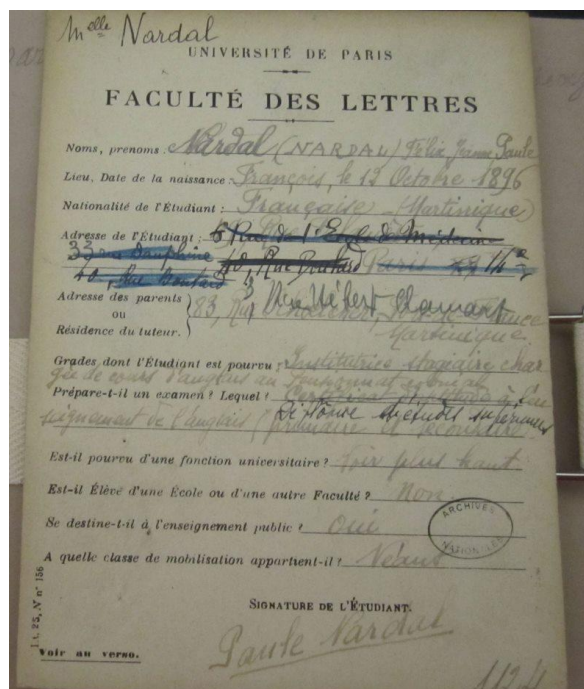 Melle Nardal
UNIVERSITÉ DE PARIS
FACULTÉ DES LETTRES
Noms, prenoms : Nardal (NARDAL) Félix Jeanne Paule
Lieu, Date de la naissance : François, le 12 Octobre 1896
Nationalité de l'Étudiant : Française (Martinique)
Adresse de l'Étudiant : 6 Rue de l'Ecole de Médecine
33 rue Dauphine 40, Rue Boutard Paris
40, Rue Boutard
3 Rue Hébert Clamart
Adresse des parents
ou
Résidence du tuteur.
83, Rue France
Martinique
Grades dont l'Étudiant est pourvu : Institutrice stagiaire char
gée de cours d'anglais au Pensionnat colonial
Prépare-t-il un examen ? Lequel ?
Diplôme d'études supérieures
seignement de l'Anglais (primaire et secondaire)
Est-il pourvu d'une fonction universitaire ? Voir plus haut
Est-il Élève d'une École ou d'une autre Faculté ? Non
Se destine-t-il à l'enseignement public ? Oui
A quelle classe de mobilisation appartient-il ? Néant
ARCHIVES
NATIONALES
SIGNATURE DE L'ÉTUDIANT.
Paule Nardal
I.t. 25, N n° 156
Voir au verso.